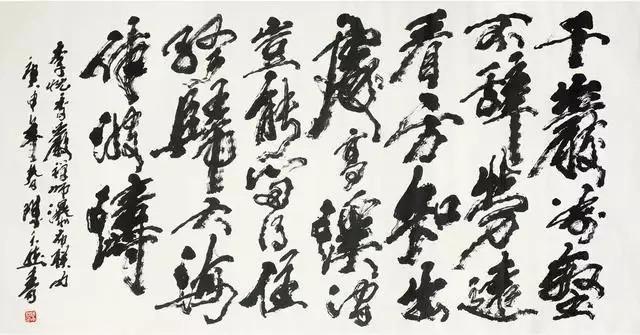 千巖萬壑
不辭勞遠
看方知出
處高溪澗
豈能留得住
終歸大海
作波濤
李忱香嚴禪師瀑布聯句
庚申春陳天然書